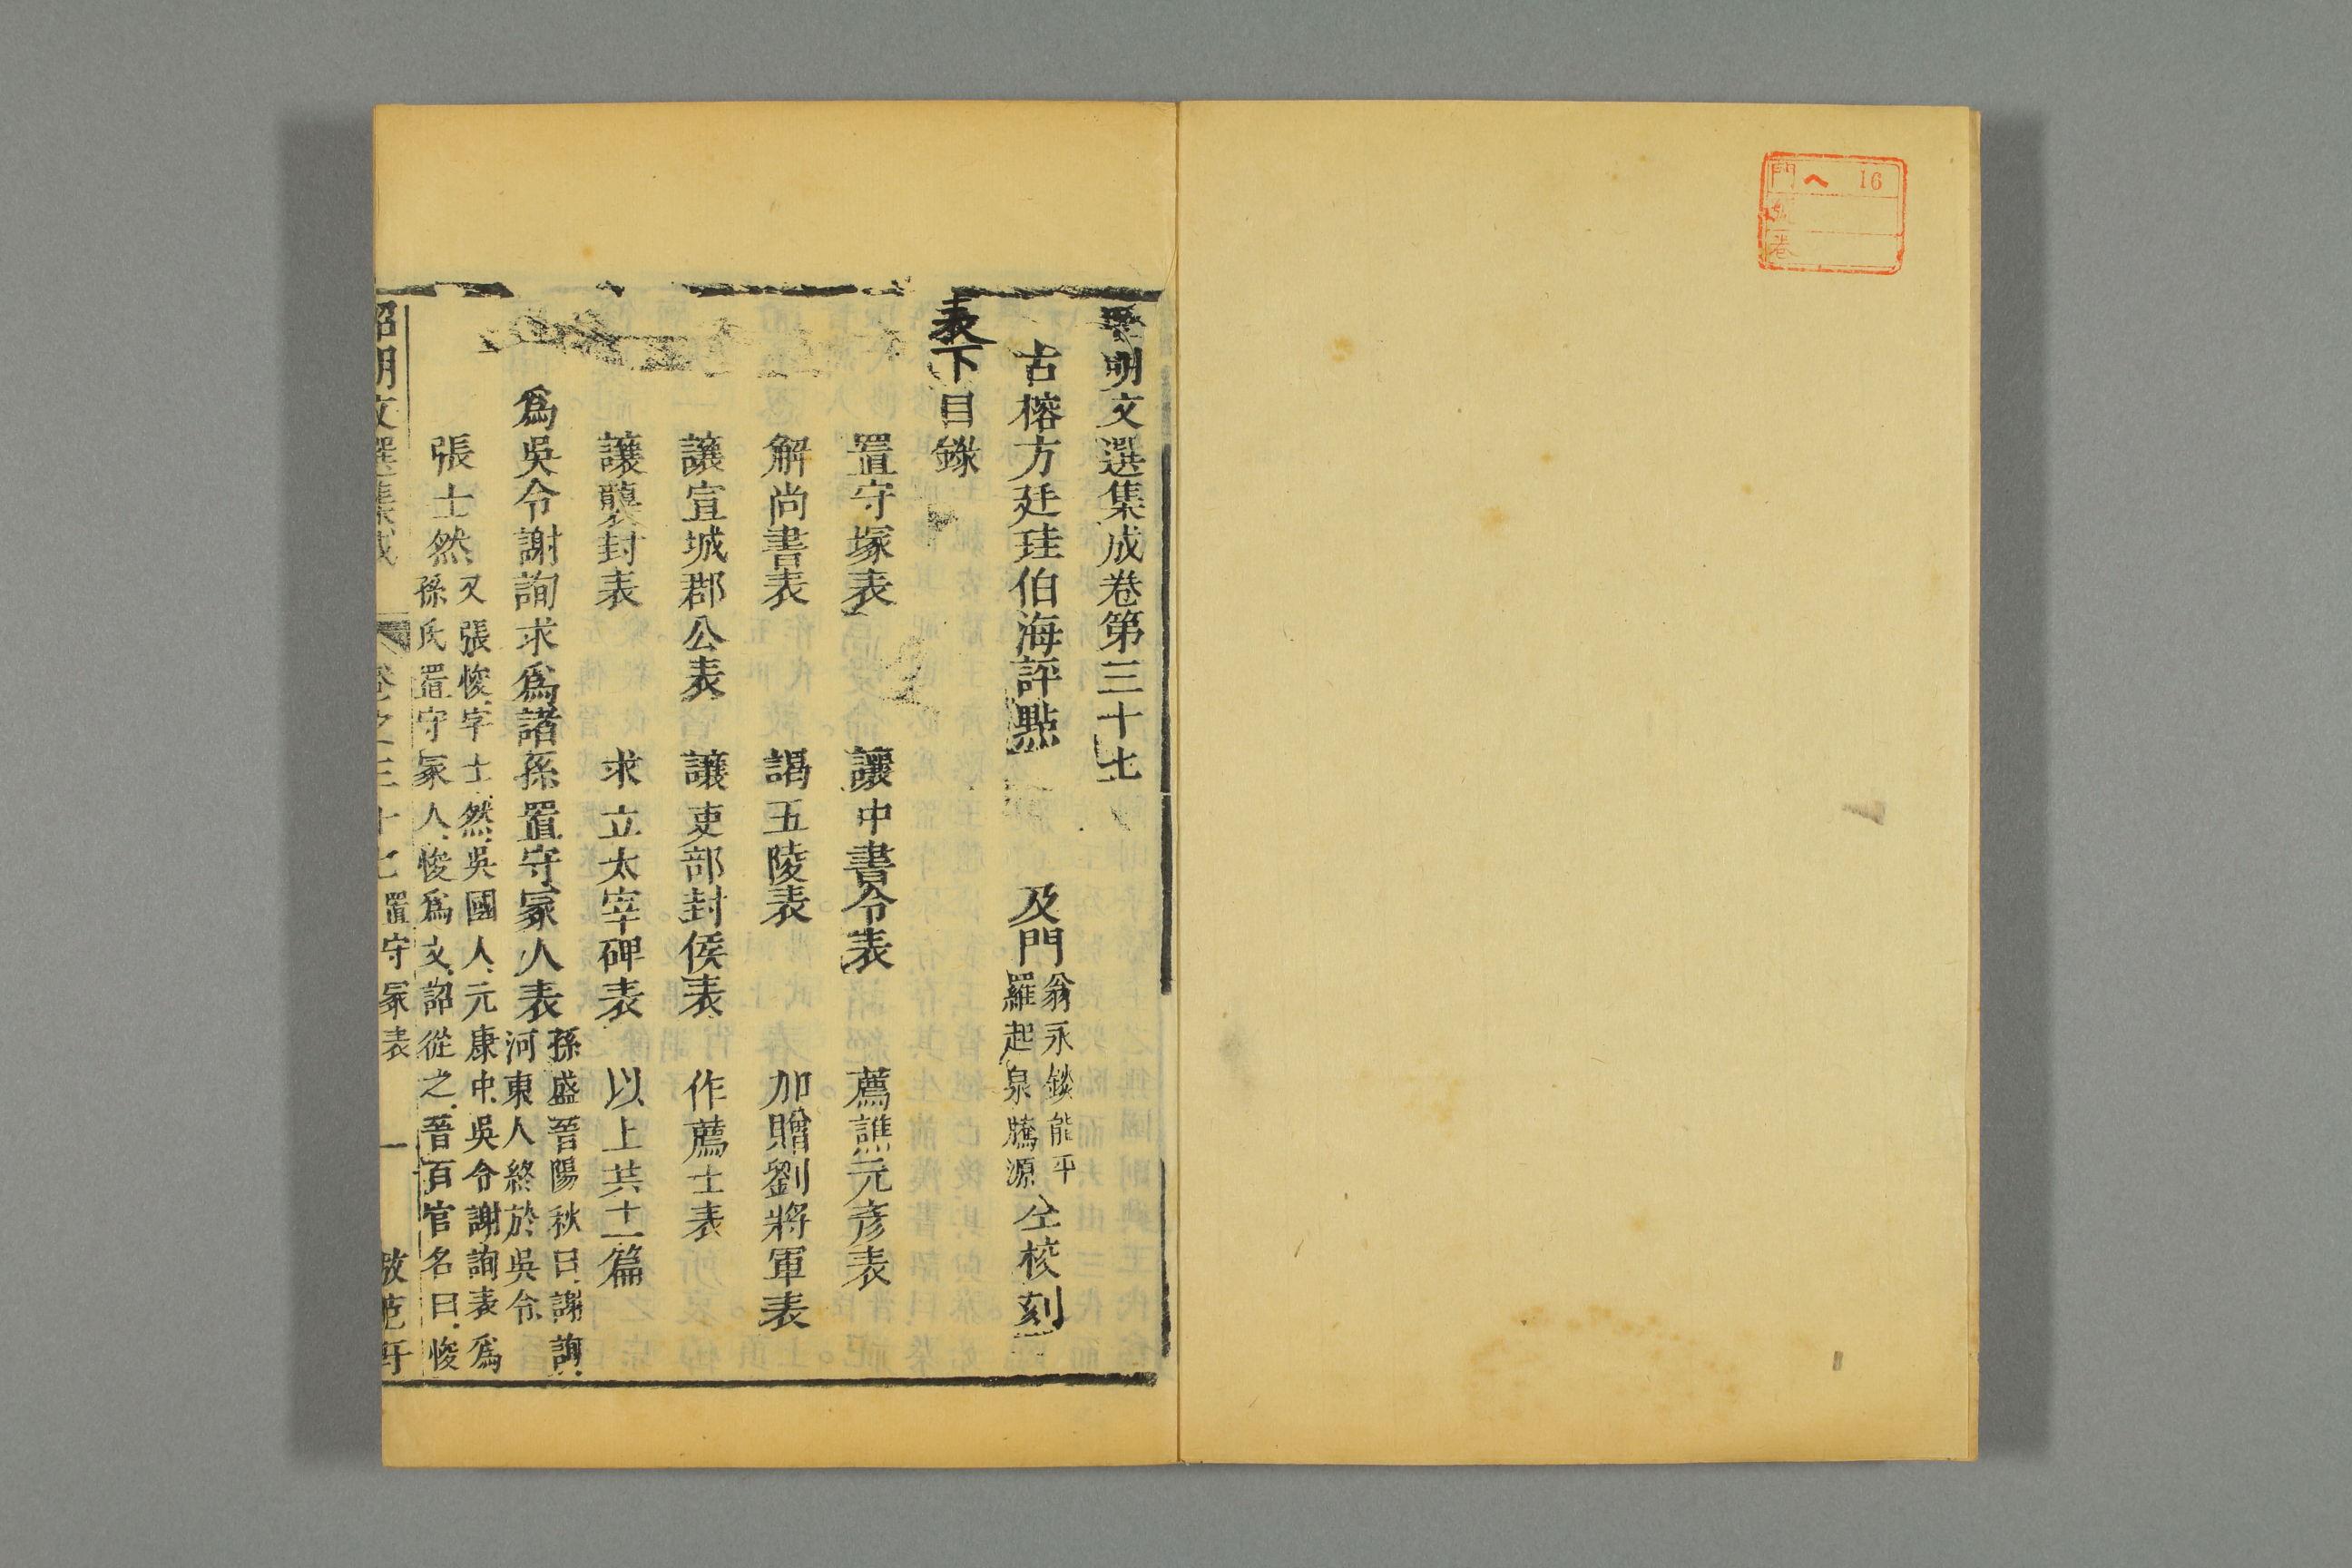 門 へ 16
號
卷
昭明文選集成卷第三十七
古榕方廷珪伯海評點 及門 翁永錟能平 羅起泉騰源 仝校刻
表下目錄
置守塚表 讓中書令表 薦譙元彥表
解尚書表 謁五陵表 加贈劉將軍表
讓宣城郡公表 讓吏部封侯表 作薦士表
讓襲封表 求立太宰碑表 以上共十一篇
為吳令謝詢求為諸孫置守冢人表 孫盛晉陽秋曰謝詢河東人終於吳令
張士然 又張悛字士然吳國人元康中吳令謝詢表為孫氏置守冢人悛為文詔從之晉百官名曰悛
昭明文選集成 卷之三十七 置守冢表 一 倣范軒